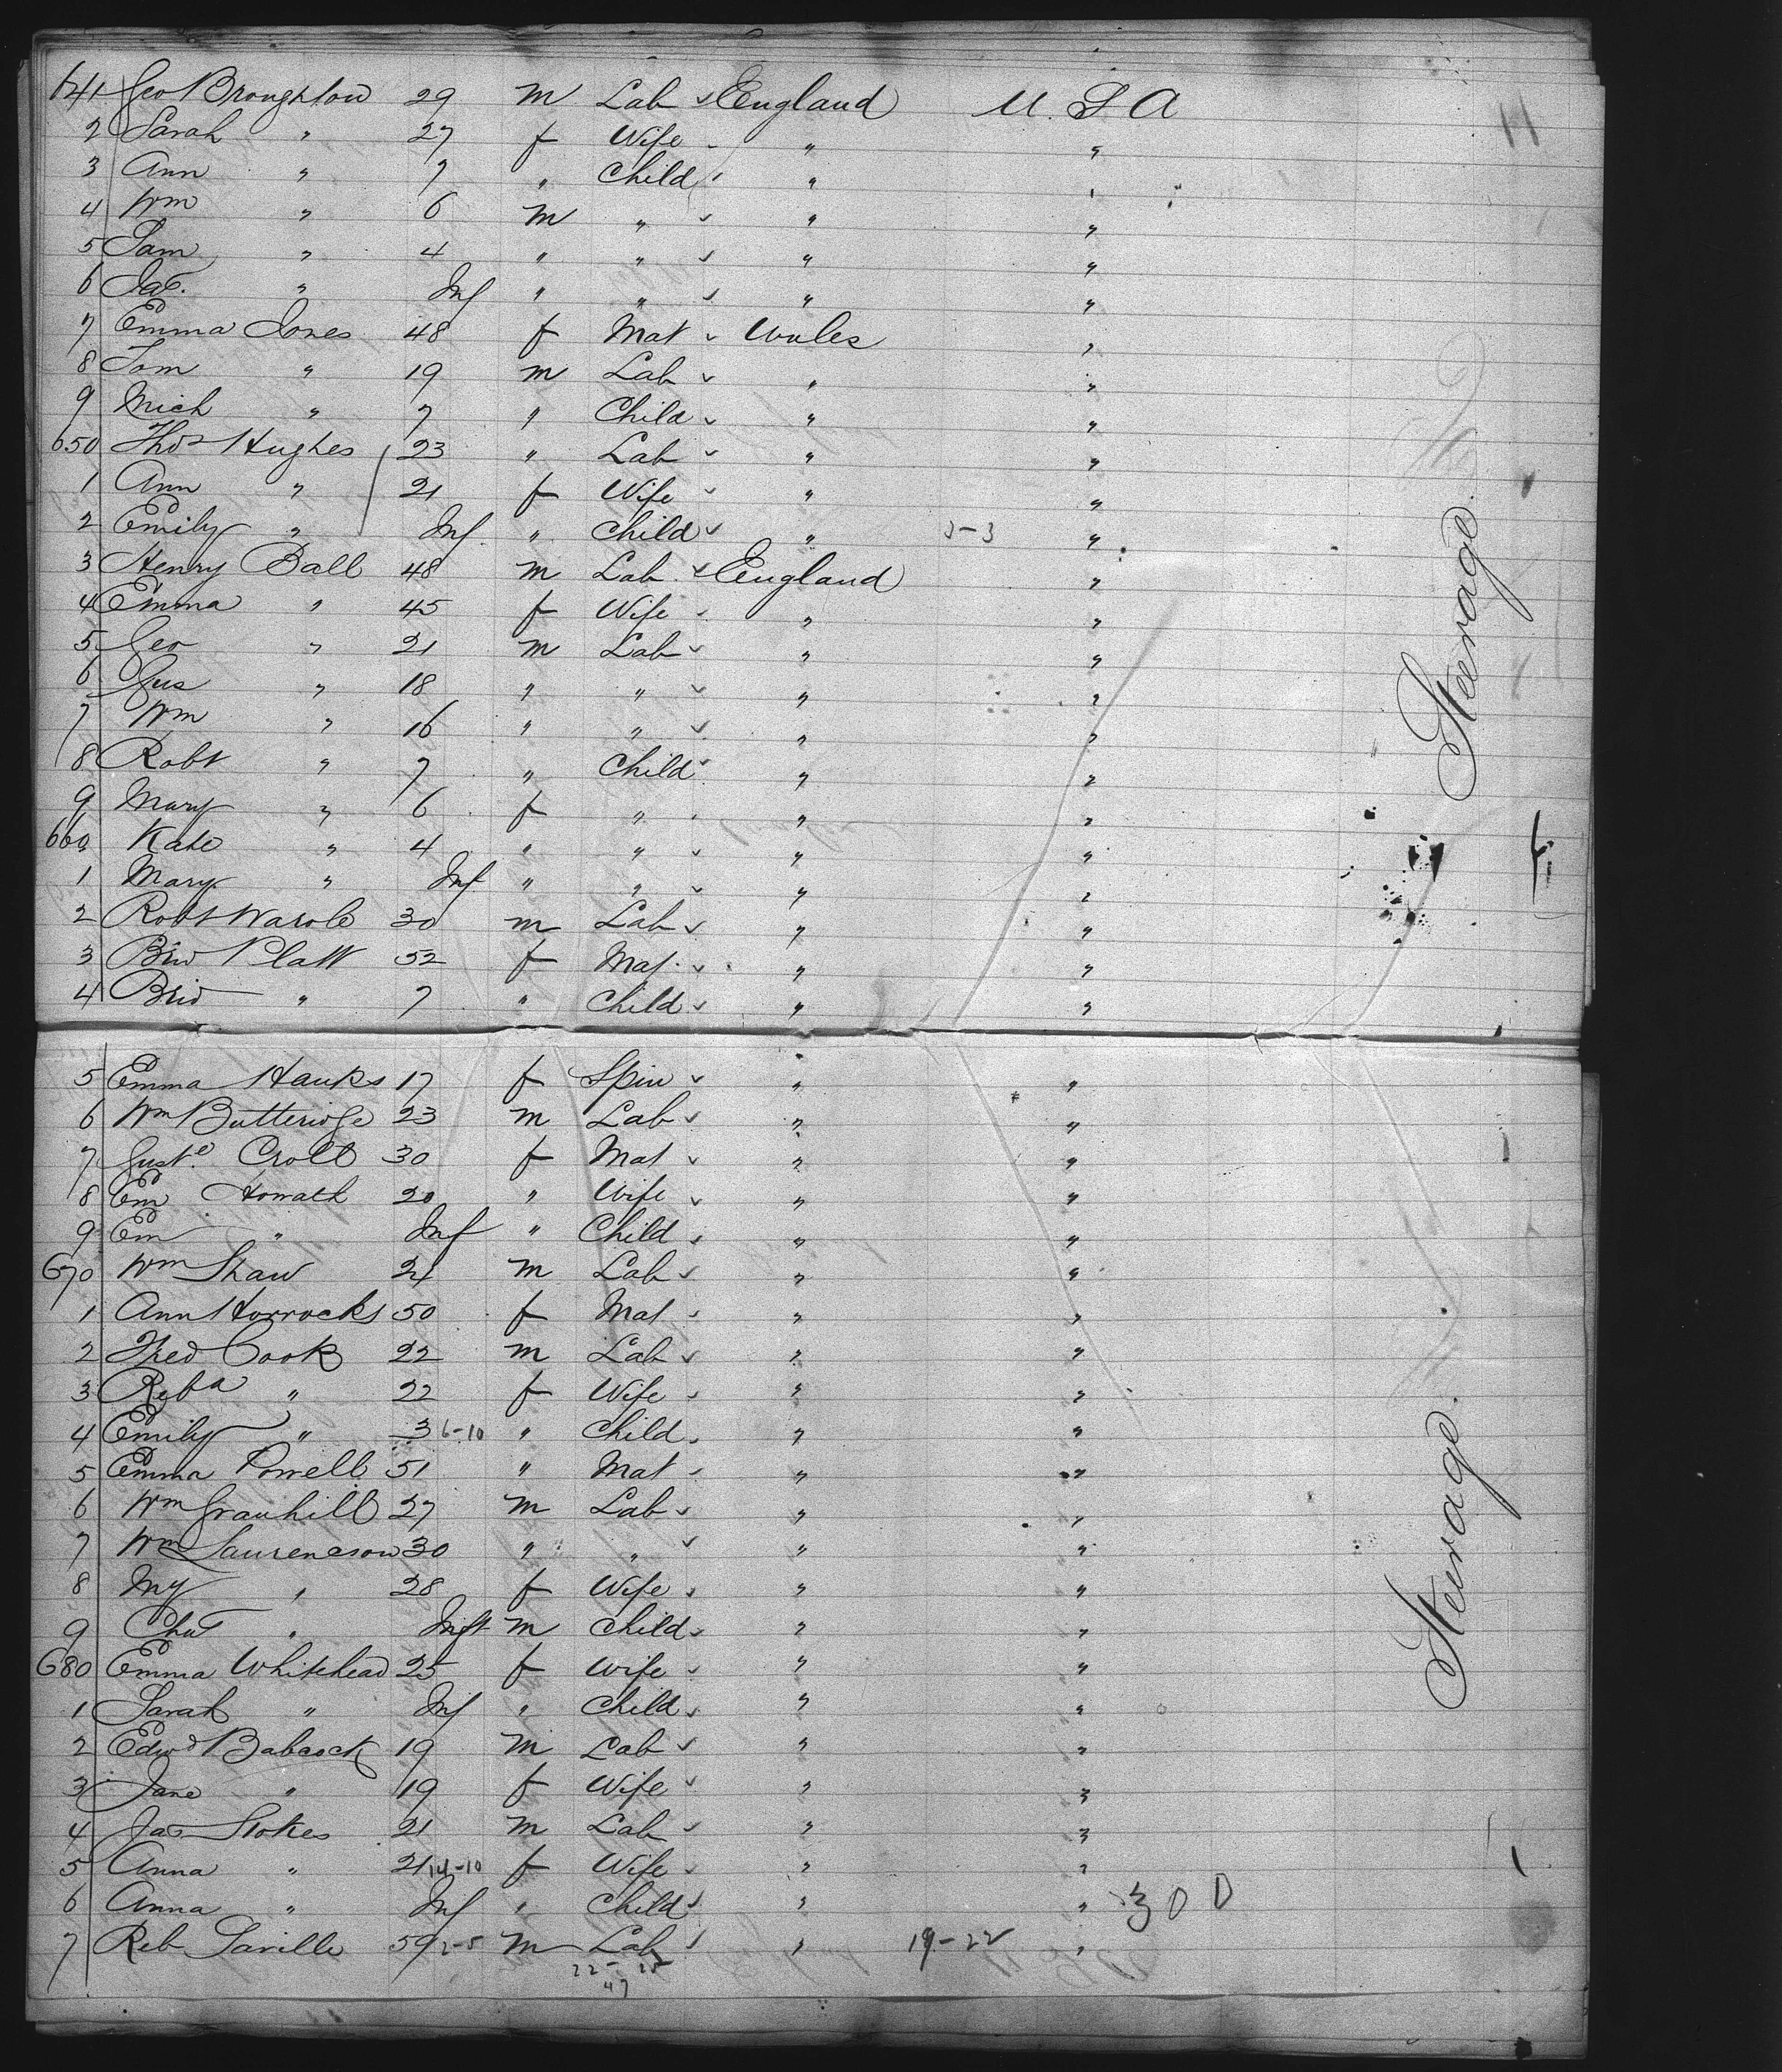 11
641 Geo Broughton 29 m Lab England U.S.A
2 Sarah " 27 f Wife " "
3 Ann " 7 " Child " "
4 Wm " 6 m " " "
5 Sam " 4 " " " "
6 Jas. " Inf " " " "
7 Emma Jones 48 f Mat Wales "
8 Tom " 19 m Lab " "
9 Mich " 7 " Child " "
650 Thos Hughes 23 " Lab " "
1 Ann " 21 f Wife " "
2 Emily " Inf. " Child " 3-3 "
3 Henry Ball 48 m Lab England "
4 Emma " 45 f Wife " "
5 Geo " 21 m Lab " "
6 Gus " 18 " " " "
7 Wm " 16 " " " "
8 Robt " 7 " Child " "
9 Mary " 6 f " " "
660 Kate " 4 " " " "
1 Mary " Inf " " " "
2 Robt 30 m Lab " "
3 Platt 52 f Mat. " "
4 Brid " 7 " Child " "
5 Emma Hanks 17 f Spin " "
6 Wm Butteridge 23 m Lab " "
7 Croll 30 f Mat " "
8 Em Horrath 20 " Wife " "
9 Em " Inf " Child " "
670 Wm Shaw 21 m Lab " "
1 Ann Horrocks 50 f Mat " "
2 Fred Cook 22 m Lab " "
3 Reba " 22 f Wife " "
4 Emily " 3 6-10 " Child " "
5 Emma Powell 51 " Mat " "
6 Wm Granhill 27 m Lab " "
7 Wm Laurenson 30 " " " "
8 My " 28 f Wife " "
9 Chas " Inft m Child " "
680 Emma Whitehead 25 f Wife " "
1 Sarah " Inf " Child " "
2 Edwd Babcock 19 m Lab " "
3 Jane " 19 f Wife " "
4 Jas Stokes 21 m Lab " "
5 Anna " 21 14-10 f Wife " "
6 Anna " Inf " Child " " 30 D
7 Reb Saville 59 2-5 m Lab " 19-22 "
22- 25
47
Steerage.
Steerage.